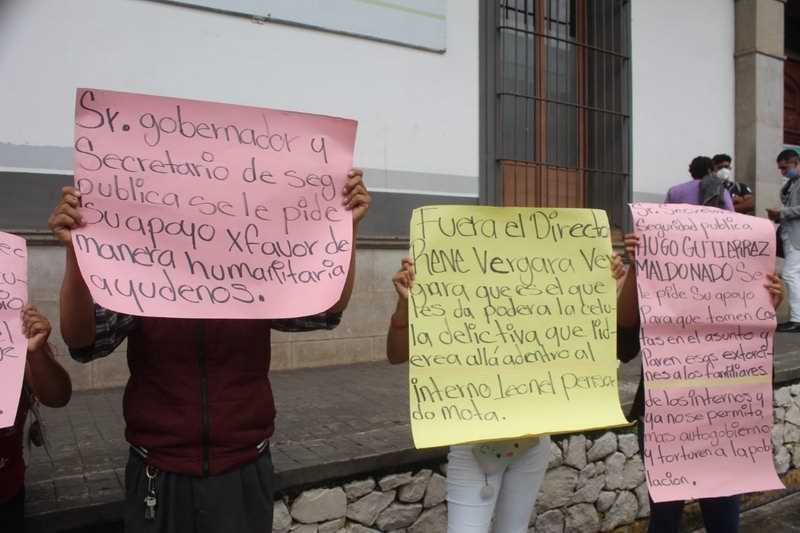 Sr. gobernador y
Secretario de seg
publica se le pide
su apoyo x favor de
manera humanitaria
ayudenos.
Fuera el Directo
Rene Vergara Ver
para que es el que
les da poder a la celu
la delictiva que lid-
erea allá adentro al
interno Leonel Perea
do mota.
Sr. Secretario
Seguridad publica
HUGO GUTIERREZ
MALDONADO Se
le pide su apoyo
Para que tomen Car
tas en el asunto y
Paren esas extorc
nes a los familiares
de los internos y
ya no se permita
mas autogobierno
y torturen a la pob
lacion.